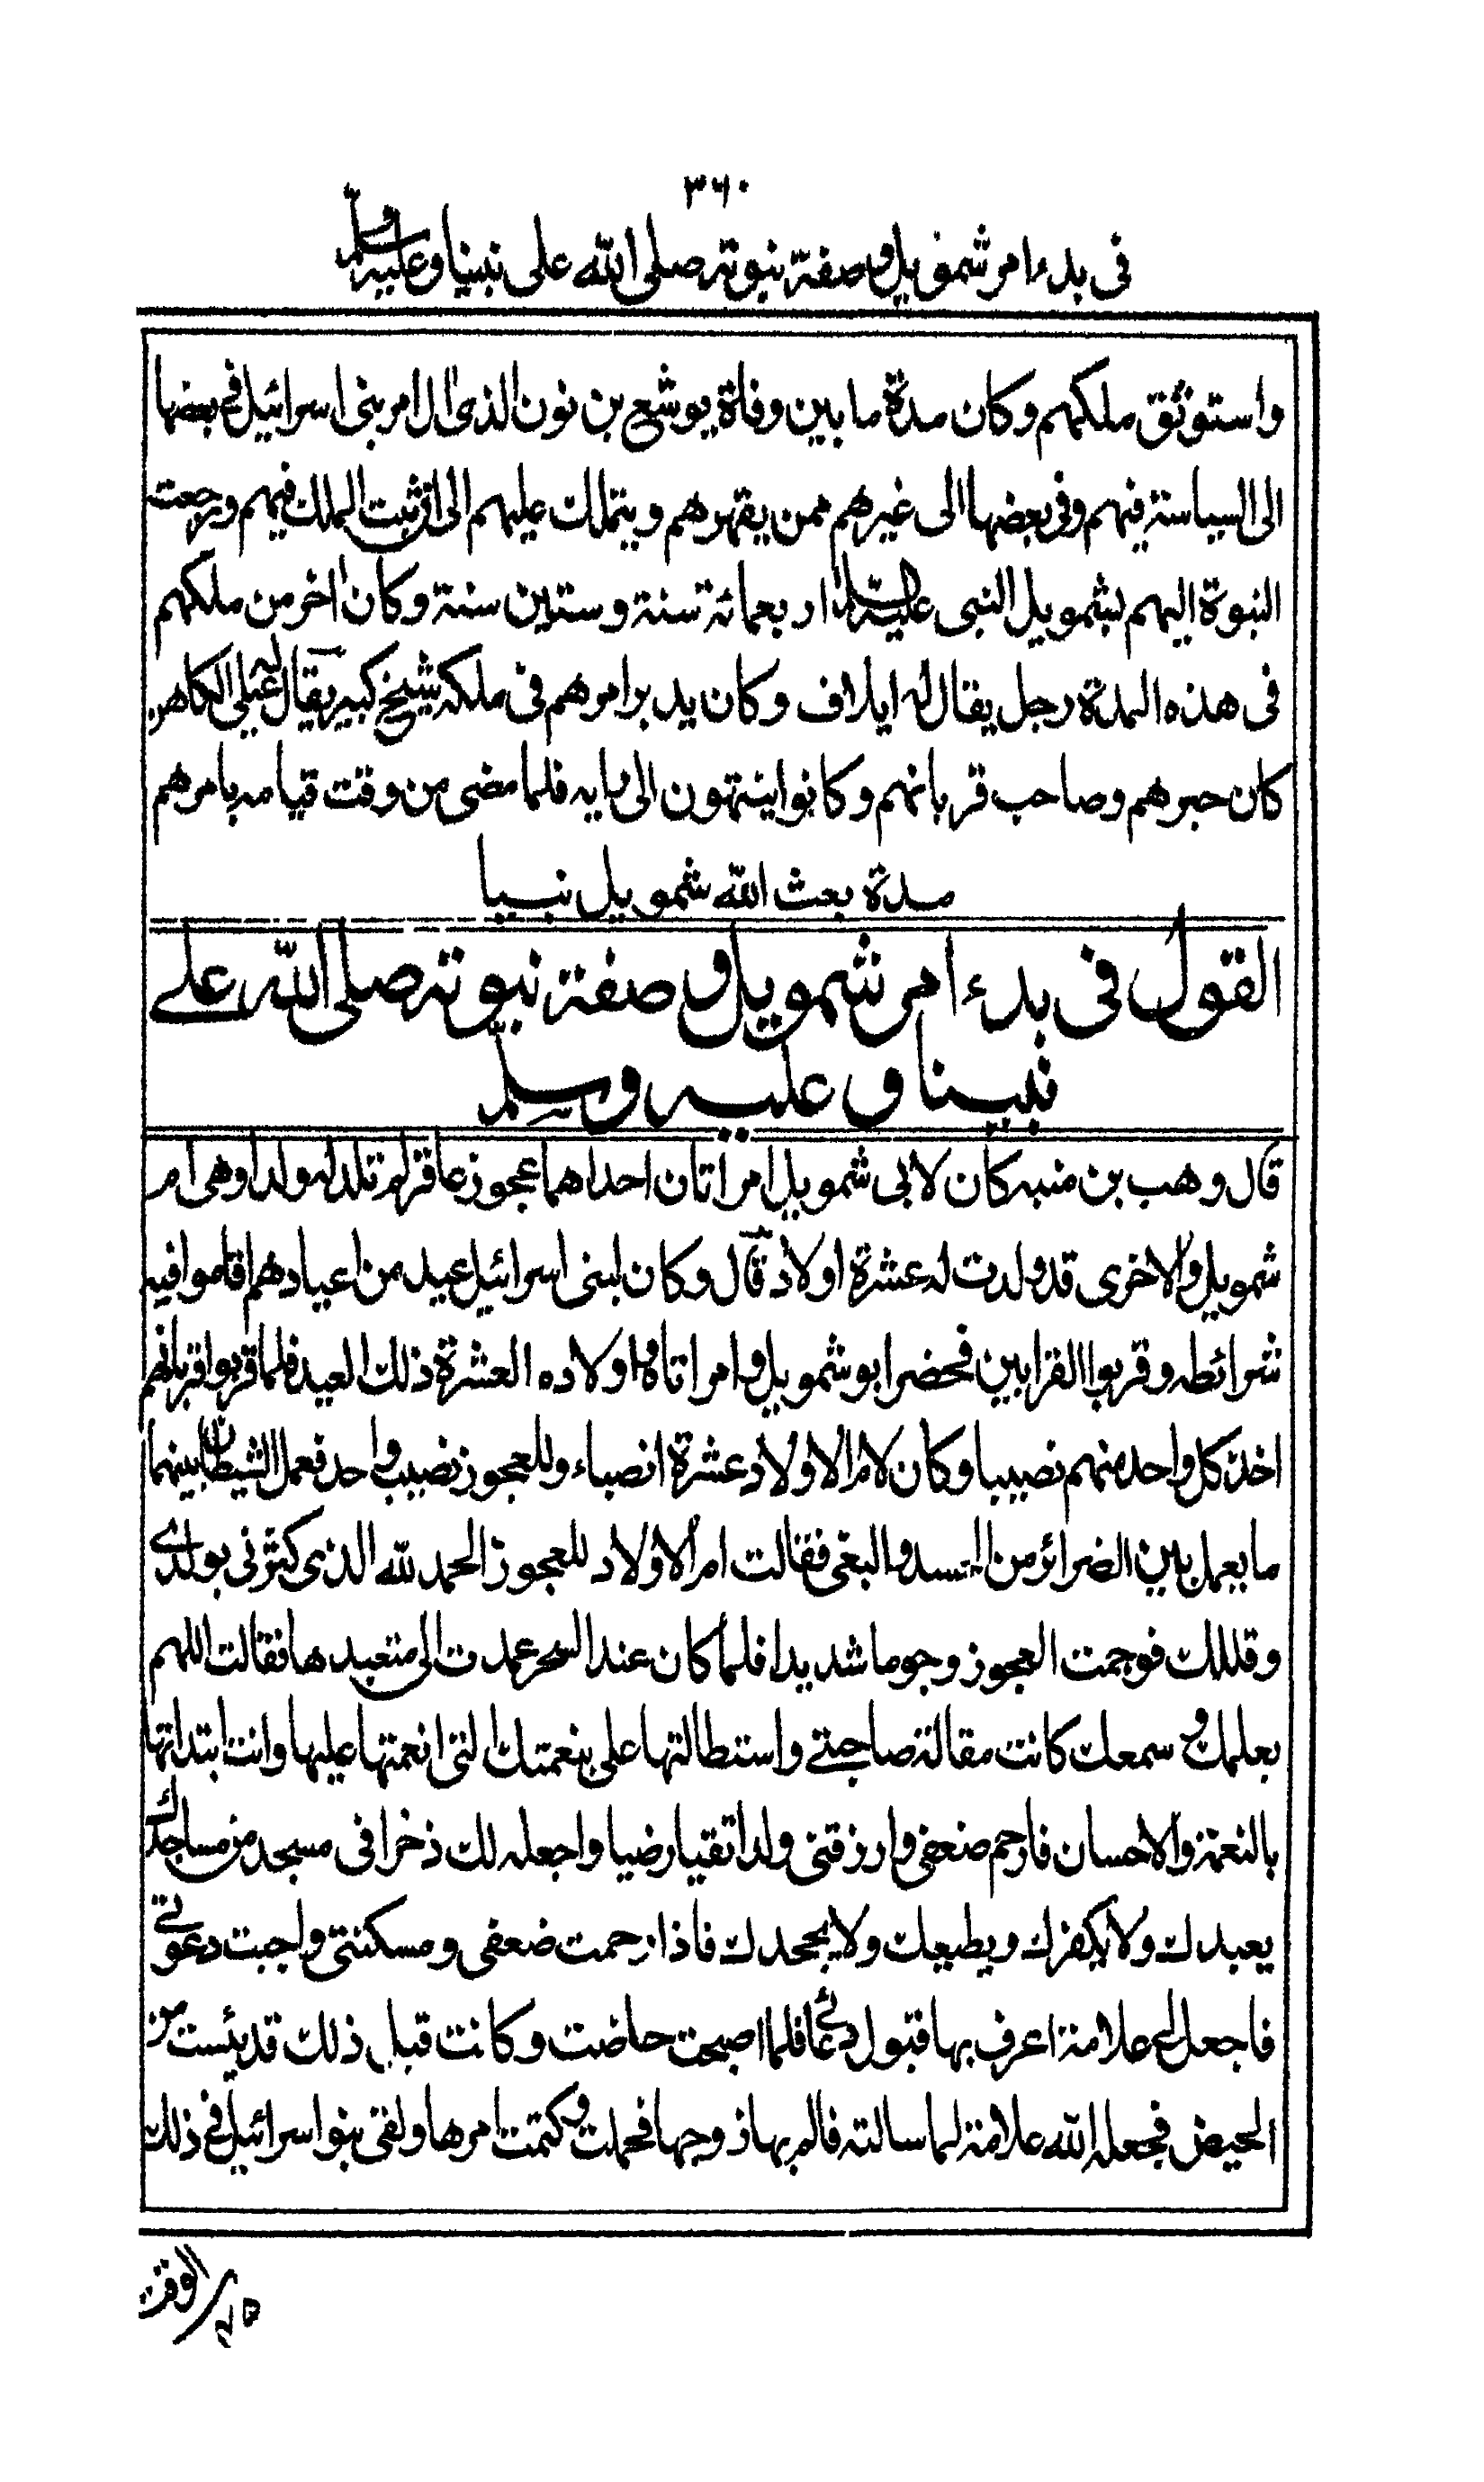 ٣٦٠
في بدء امر شمويل وصفة نبوته صلى الله على نبينا وعليه وسلم
واستوثق ملكهم وكان مدة ما بين وفاة يوشع بن نون الذي ال امر بني اسرائيل في بعضها
الى السياسة فيهم وفي بعضها الى غيرهم ممن يقهرهم ويتملك عليهم الى ان ثبت الملك فيهم ورجعت
النبوة اليهم بشمويل النبي عليه السلام اربعمائة سنة وستين سنة وكان اخر من ملكهم
في هذه المدة رجل يقال له ايلاف وكان يدبر امرهم في ملكه شيخ كبير يقال له عيلي الكاهن
كان حبرهم وصاحب قربانهم وكانوا ينتهون الى رايه فلما مضى من وقت قيامه بامرهم
مدة بعث الله شمويل نبيا
القول في بدء امر شمويل وصفة نبوته صلى الله على
نبينا وعليه وسلم
قال وهب بن منبه كان لابي شمويل امراتان احداهما عجوز عاقر لم تلد له ولدا وهي ام
شمويل والاخرى قد ولدت له عشرة اولاد قال وكان لبني اسرائيل عيد من اعيادهم اقاموا فيه
شرائطه وقربوا القرابين فحضر ابو شمويل وامراتاه واولاده العشرة ذلك العيد فلما قربوا قربانهم
اخذ كل واحد منهم نصيبا وكان لام الاولاد عشرة انصباء وللعجوز نصيب واحد فعمل الشيطان بينهما
ما يعمل بين الضرائر من الحسد والبغي فقالت ام الاولاد للعجوز الحمد لله الذي كثرني بولدي
وقللك فوجمت العجوز وجوما شديدا فلما كان عند السحر عمدت الى متعبدها فقالت اللهم
بعلمك وسمعك كانت مقالة صاحبتي واستطالتها علي بنعمتك التي انعمتها عليها وانت ابتداتها
بالنعمة والاحسان فارحم ضعفي وارزقني ولدا تقيا رضيا واجعله لك ذخرا في مسجد من مساجدك
يعبدك ولا يكفرك ويطيعك ولا يجحدك فاذا رحمت ضعفي ومسكنتي واجبت دعوتي
فاجعل لي علامة اعرف بها قبول دعائي فلما اصبحت حاضت وكانت قبل ذلك قد يئست من
الحيض فجعله الله علامة لما سالته فالم بها زوجها فحملت وكتمت امرها ولقي بنو اسرائيل في ذلك
الوقت